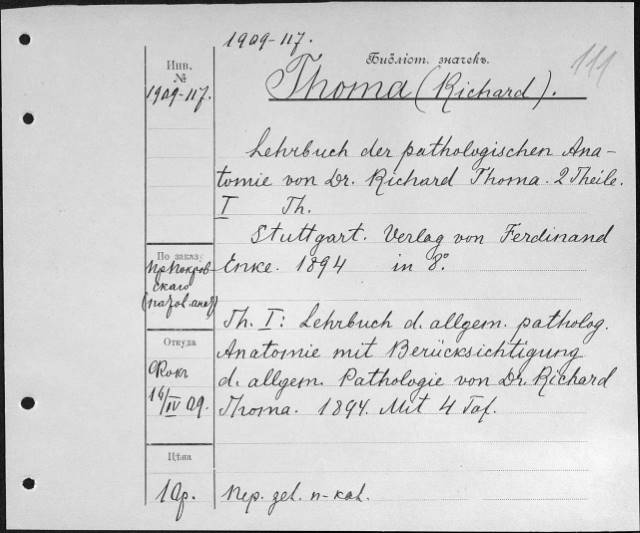 1909-117.
Библіот. значекъ.
111
Thoma (Richard).
Инв.
№
1909-117.
Lehrbuch der pathologischen Ana-
tomie von Dr. Richard Thoma. 2 Theile.
I Th.
Stuttgart. Verlag von Ferdinand
Enke. 1894 in 8°.
По заказу
скаго
Th. I: Lehrbuch d. allgem. patholog.
Anatomie mit Berücksichtigung
d. allgem. Pathologie von Dr. Richard
Thoma. 1894. Mit 4 Taf.
Откуда
16/IV 09.
Цѣна
1 р.
Пер. zel. п-kal.